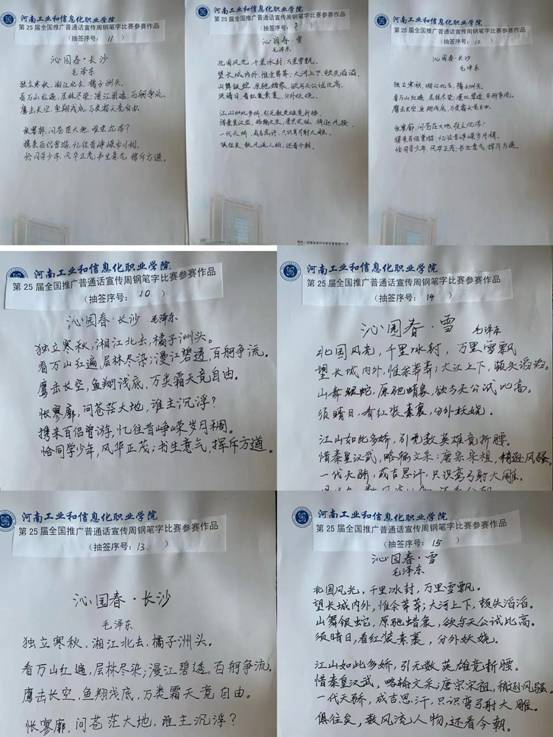 河南工业和信息化职业学院
第25届全国推广普通话宣传周钢笔字比赛参赛作品
(抽签序号: 11 )
沁园春·长沙
毛泽东
独立寒秋,湘江北去,橘子洲头。
看万山红遍,层林尽染;漫江碧透,百舸争流。
鹰击长空,鱼翔浅底,万类霜天竞自由。
怅寥廓,问苍茫大地,谁主沉浮?
携来百侣曾游,忆往昔峥嵘岁月稠。
恰同学少年,风华正茂;书生意气,挥斥方遒。
第25届全国推广普通话宣传周钢笔字比赛参赛作品
(抽签序号:
沁园春·雪
毛泽东
北国风光,千里冰封,万里雪飘。
望长城内外,惟余莽莽;大河上下,顿失滔滔。
山舞银蛇,原驰蜡象,欲与天公试比高。
须晴日,看红装素裹,分外妖娆。
江山如此多娇,引无数英雄竞折腰。
惜秦皇汉武,略输文采;唐宗宋祖,稍逊风骚。
一代天骄,成吉思汗,只识弯弓射大雕。
俱往矣,数风流人物,还看今朝。
河南工业和信息化职业学院
第25届全国推广普通话宣传周钢笔字比赛参赛作品
(抽签序号:
沁园春·长沙
毛泽东
独立寒秋,湘江北去,橘子洲头。
看万山红遍,层林尽染;漫江碧透,百舸争流。
鹰击长空,鱼翔浅底,万类霜天竞自由。
怅寥廓,问苍茫大地,谁主沉浮?
携来百侣曾游,忆往昔峥嵘岁月稠。
恰同学少年,风华正茂;书生意气,挥斥方遒。
河南工业和信息化职业学院
第25届全国推广普通话宣传周钢笔字比赛参赛作品
(抽签序号: 10 )
沁园春·长沙 毛泽东
独立寒秋,湘江北去,橘子洲头。
看万山红遍,层林尽染;漫江碧透,百舸争流。
鹰击长空,鱼翔浅底,万类霜天竞自由。
怅寥廓,问苍茫大地,谁主沉浮?
携来百侣曾游,忆往昔峥嵘岁月稠。
恰同学少年,风华正茂;书生意气,挥斥方遒。
河南工业和信息化职业学院
第25届全国推广普通话宣传周钢笔字比赛参赛作品
(抽签序号: 14 )
沁园春·雪 毛泽东
北国风光,千里冰封,万里雪飘
望长城内外,惟余莽莽;大江上下,顿失滔滔。
山舞银蛇,原驰蜡象,欲与天公试比高。
须晴日,看红装素裹,分外妖娆。
江山如此多娇,引无数英雄竞折腰。
惜秦皇汉武,略输文采;唐宗宋祖,稍逊风骚
一代天骄,成吉思汗,只识弯弓射大雕。
河南工业和信息化职业学院
第25届全国推广普通话宣传周钢笔字比赛参赛作品
(抽签序号: 13 )
沁园春·长沙
毛泽东
独立寒秋,湘江北去,橘子洲头。
看万山红遍,层林尽染;漫江碧透,百舸争流。
鹰击长空,鱼翔浅底,万类霜天竞自由。
怅寥廓,问苍茫大地,谁主沉浮?
河南工业和信息化职业学院
第25届全国推广普通话宣传周钢笔字比赛参赛作品
(抽签序号: 15 )
沁园春·雪
毛泽东
北国风光,千里冰封,万里雪飘。
望长城内外,惟余莽莽;大河上下,顿失滔滔。
山舞银蛇,原驰蜡象,欲与天公试比高。
须晴日,看红装素裹,分外妖娆。
江山如此多娇,引无数英雄竞折腰。
惜秦皇汉武,略输文采;唐宗宋祖,稍逊风骚。
一代天骄,成吉思汗,只识弯弓射大雕。
俱往矣,数风流人物,还看今朝。